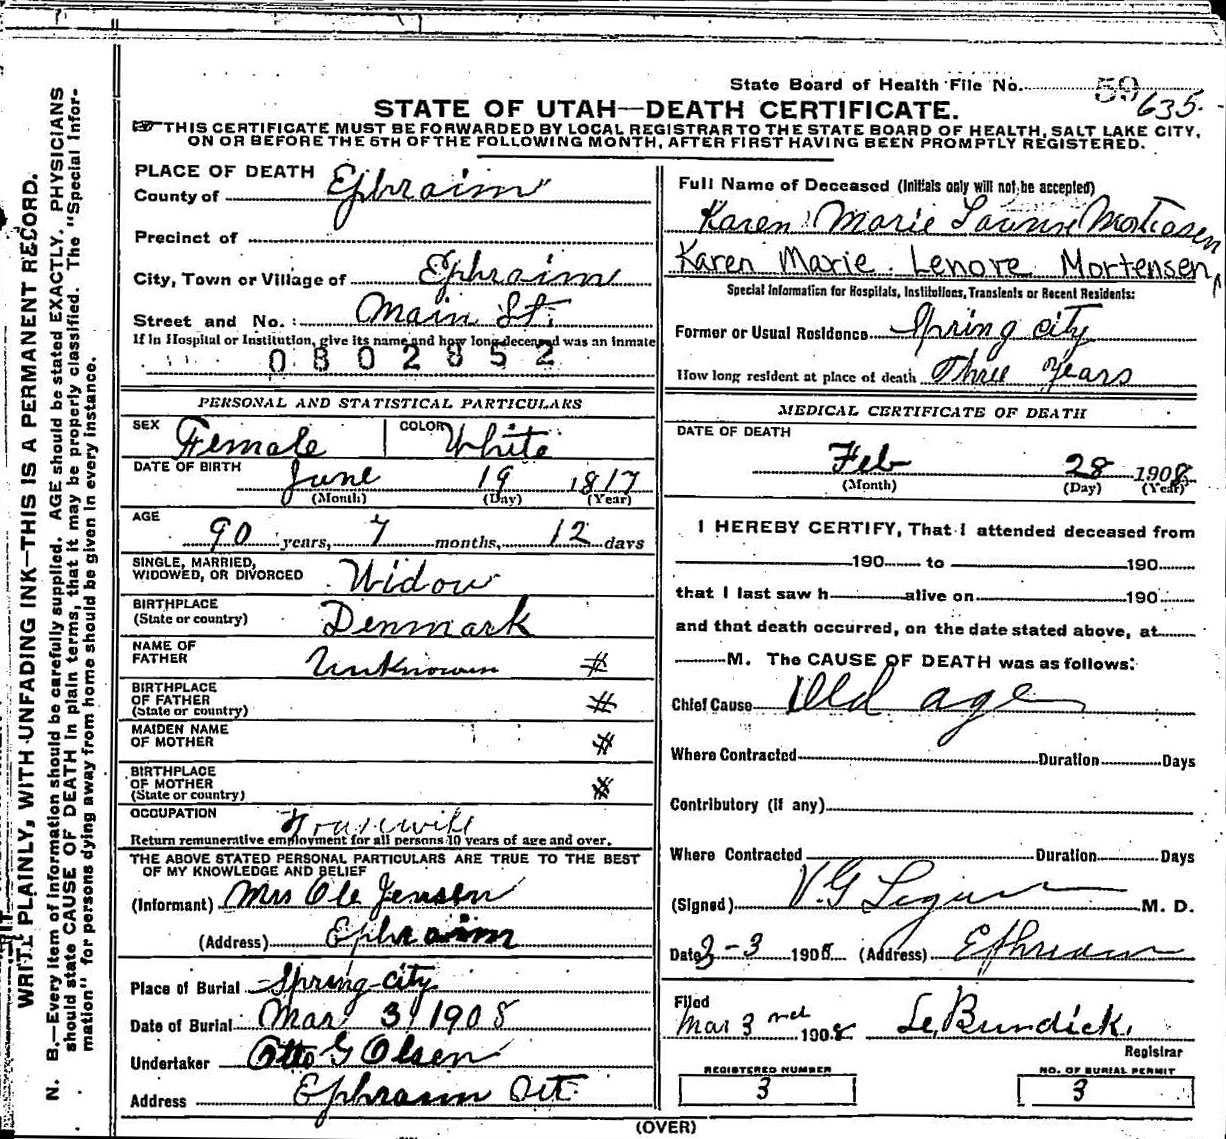 State Board of Health File No. 59 635.
STATE OF UTAH—DEATH CERTIFICATE.
THIS CERTIFICATE MUST BE FORWARDED BY LOCAL REGISTRAR TO THE STATE BOARD OF HEALTH, SALT LAKE CITY,
ON OR BEFORE THE 5TH OF THE FOLLOWING MONTH, AFTER FIRST HAVING BEEN PROMPTLY REGISTERED.
WRITE PLAINLY, WITH UNFADING INK—THIS IS A PERMANENT RECORD.
N. B.—Every item of information should be carefully supplied. AGE should be stated EXACTLY. PHYSICIANS
should state CAUSE OF DEATH in plain terms, that it may be properly classified. The "Special Infor-
mation" for persons dying away from home should be given in every instance.
PLACE OF DEATH
County of Ephraim
Precinct of
City, Town or Village of Ephraim
Street and No.: Main St.
If in Hospital or Institution, give its name and how long deceased was an inmate
0802852
PERSONAL AND STATISTICAL PARTICULARS
SEX Female COLOR White
DATE OF BIRTH June 19 1817
(Month) (Day) (Year)
AGE
90 years, 7 months, 12 days
SINGLE, MARRIED,
WIDOWED, OR DIVORCED Widow
BIRTHPLACE
(State or country) Denmark
NAME OF
FATHER Unknown #
BIRTHPLACE
OF FATHER
(State or country) #
MAIDEN NAME
OF MOTHER #
BIRTHPLACE
OF MOTHER
(State or country) #
OCCUPATION
Return remunerative employment for all persons 10 years of age and over.
THE ABOVE STATED PERSONAL PARTICULARS ARE TRUE TO THE BEST
OF MY KNOWLEDGE AND BELIEF
(Informant) Mrs Ole Jensen
(Address) Ephraim
Place of Burial Spring city
Date of Burial Mar 3 1908
Undertaker Otto G Olsen
Address Ephraim Ut.
Full Name of Deceased (Initials only will not be accepted)
Karen Marie Mortensen
Karen Marie Lenore Mortensen
Special Information for Hospitals, Institutions, Transients or Recent Residents:
Former or Usual Residence Spring city
How long resident at place of death Three Years
MEDICAL CERTIFICATE OF DEATH
DATE OF DEATH
Feb 28 1908
(Month) (Day) (Year)
I HEREBY CERTIFY, That I attended deceased from
190 to 190
that I last saw h alive on 190
and that death occurred, on the date stated above, at
M. The CAUSE OF DEATH was as follows:
Chief Cause Old age
Where Contracted Duration Days
Contributory (if any)
Where Contracted Duration Days
(Signed) V.G M. D.
Date 3-3 1908 (Address) Ephraim
Filed
Mar 3rd 1908
Registrar
REGISTERED NUMBER
3
NO. OF BURIAL PERMIT
3
(OVER)